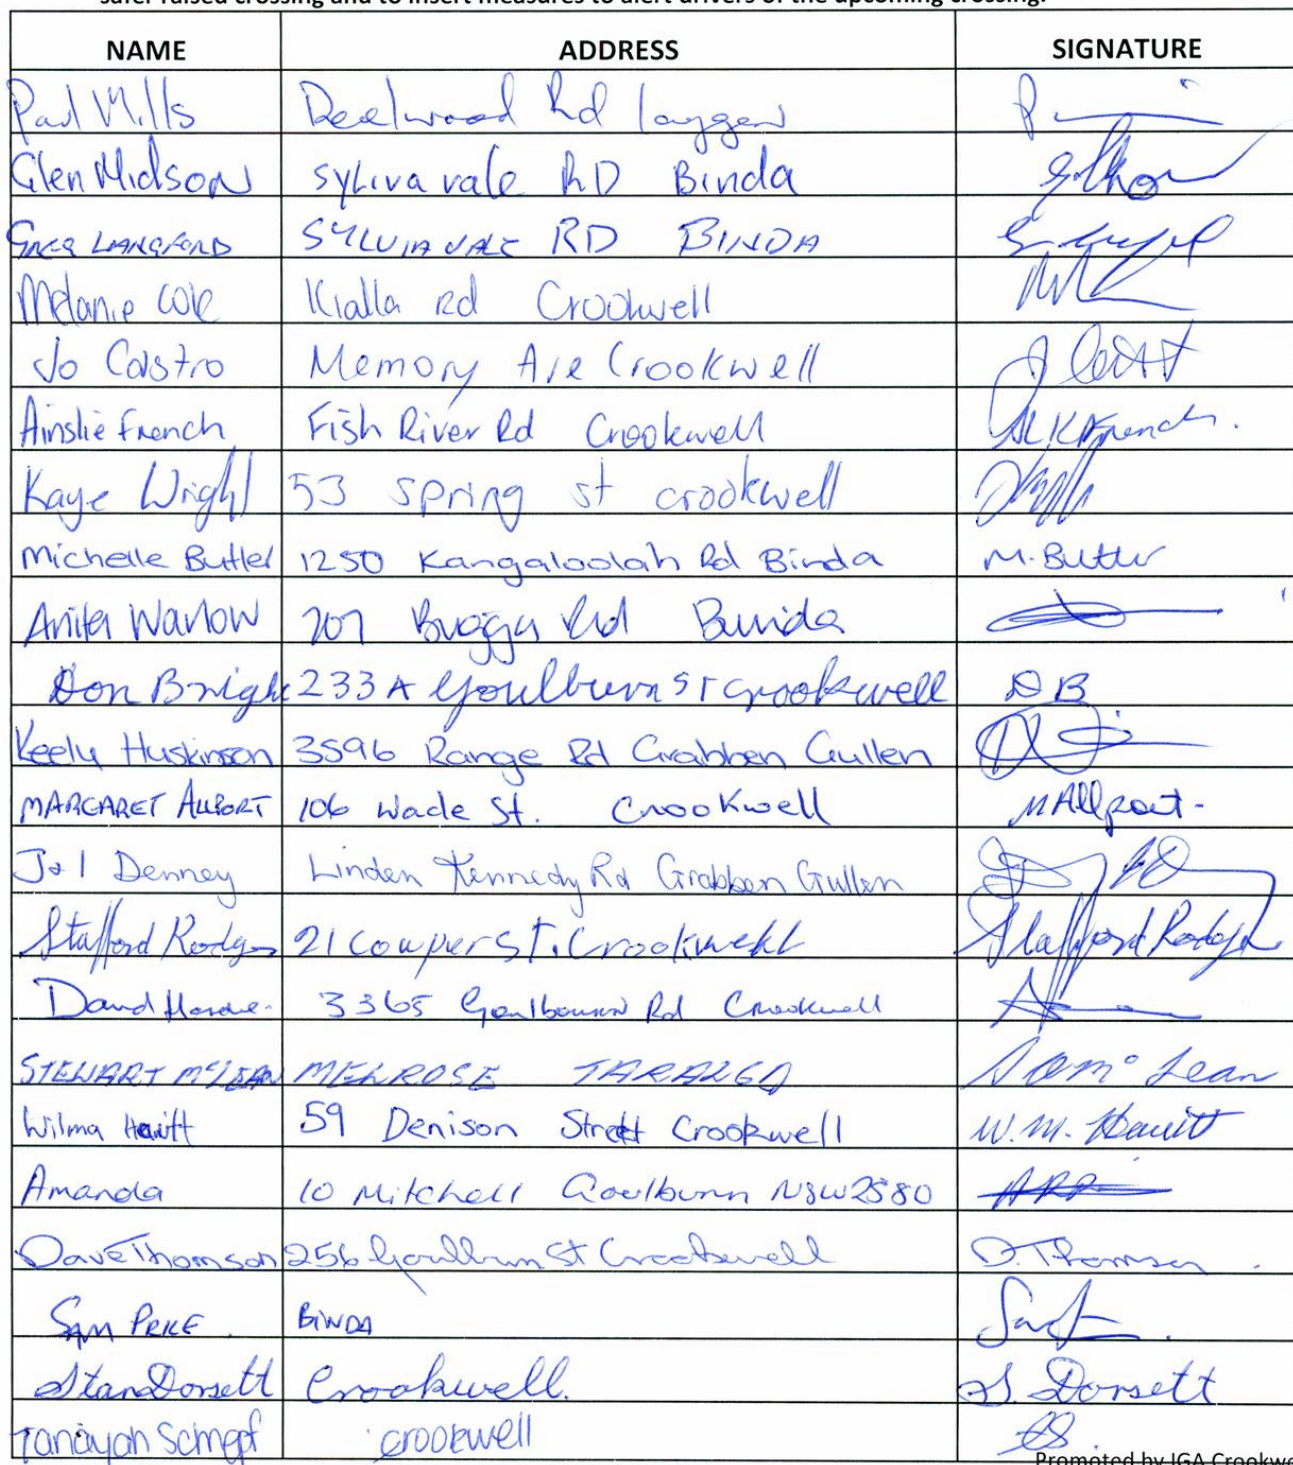 safer raised crossing and to insert measures to alert drivers of the upcoming crossing.
NAME ADDRESS SIGNATURE
Paul Mills Reelwood Rd Laggan
Glen Midson Sylivavale RD Binda
GREG LANGFORD SYLVIAVALE RD BINDA
Melanie Cole Kialla Rd Crookwell
Jo Castro Memory Ave Crookwell
Ainslie French Fish River Rd Crookwell ALKFrench.
Kaye Wright 53 Spring st crookwell
Michelle Butler 1250 Kangaloolah Rd Binda M. Butler
Anita Warlow 207 Rd Binda
Don Brigh 233A Goulburn St Crookwell DB
Keely Huskinson 3596 Range Rd Grabben Gullen
MARGARET ALLPORT 106 Wade St. Crookwell MAllport-
J&I Denney Linden Kennedy Rd Grabben Gullen
Stafford Rodger 21 Cowper St. Crookwell Stafford Rodger
David 3365 Goulbourn Rd Crookwell
STEWART McLEAN MELROSE TARALGA McLean
Wilma Hewitt 59 Denison Street Crookwell W.M. Hewitt
Amanda 10 Mitchell Goulburn NSW 2580
Dave Thomson 256 Goulburn St Crookwell D. Thomson
SAM PRICE BINDA
Stan Dorsett Crookwell. S. Dorsett
Tanayah Schepf crookwell
Promoted by IGA Crookwe